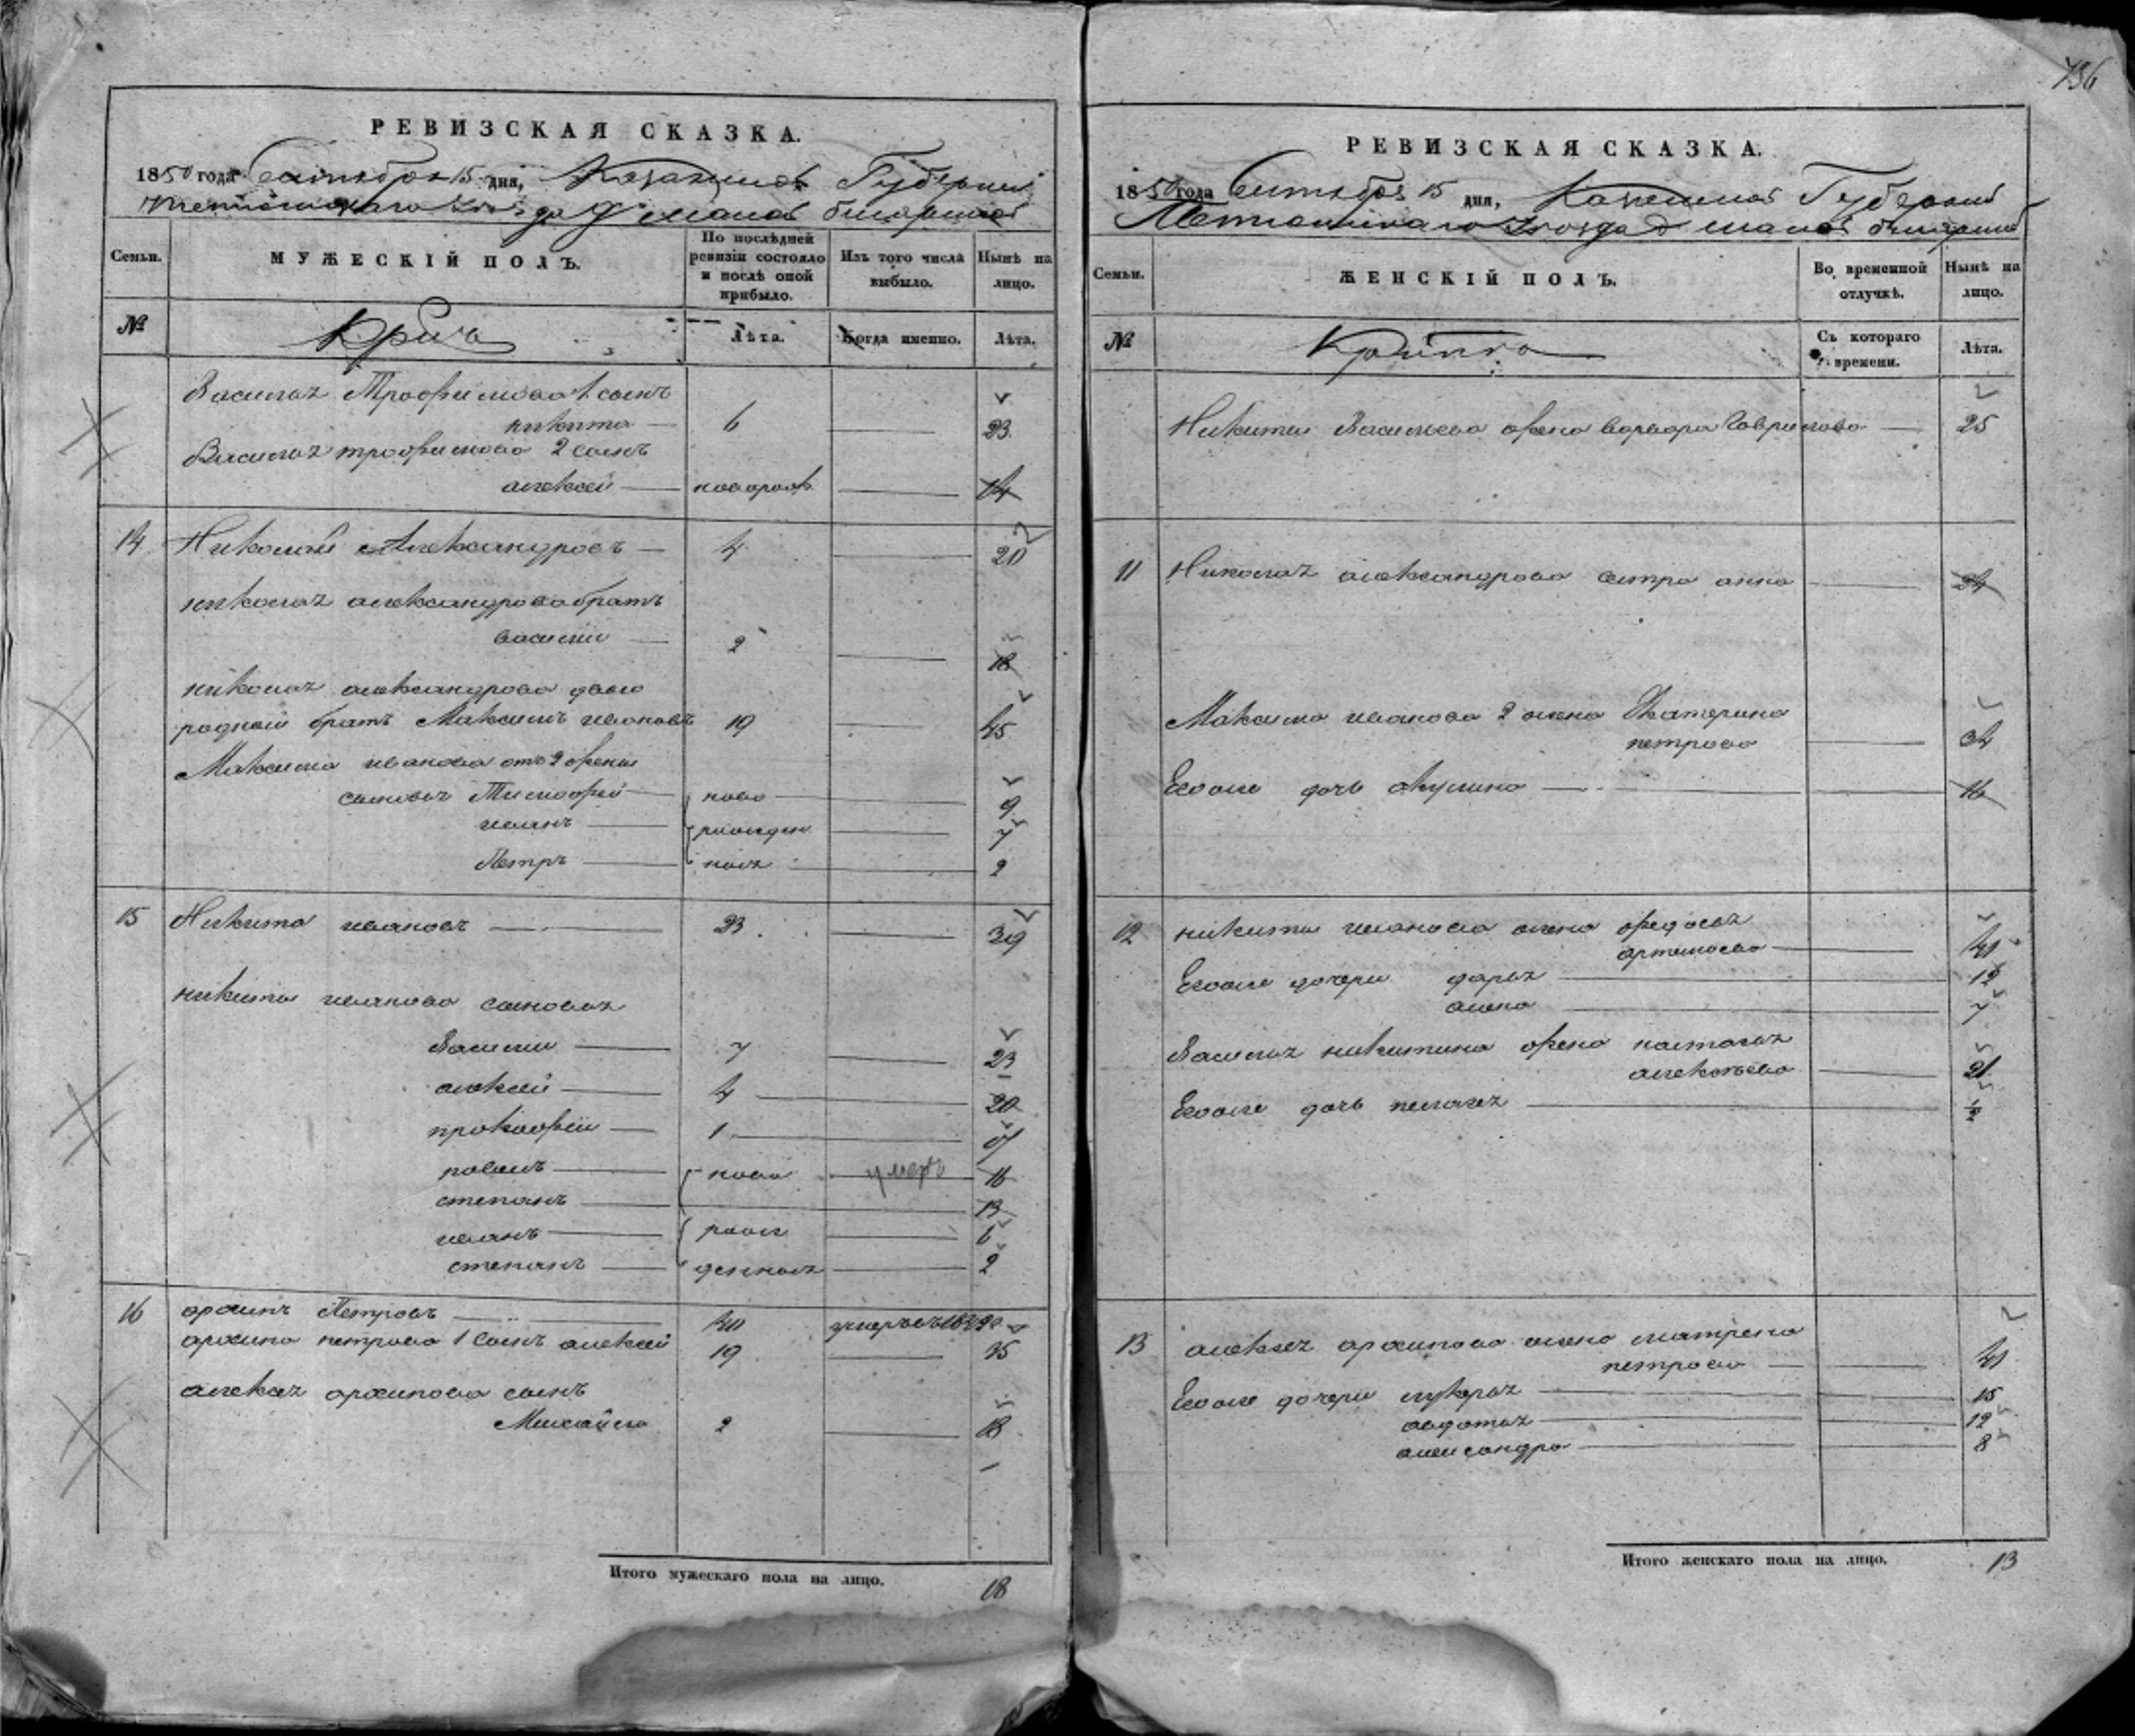 РЕВИЗСКАЯ СКАЗКА.
1850 года Сентября 15 дня, Казанской Губернии
уезда
Семьи.
МУЖЕСКІЙ ПОЛЪ.
По послѣдней ревизіи состояло и послѣ оной прибыло.
Изъ того числа выбыло.
Нынѣ на лицо.
№
Лѣта.
Когда именно.
Лѣта.
Василья Трофимова 1 сынъ
никита 6 23
Василья трофимова 2 сынъ
алексей новорож 14
14 Николай Александровъ 4 20
николая александрова братъ
василии 2 18
николая александрова двою
родный братъ Максимъ ивановъ 19 45
Максима иванова отъ 2 жены
сыновья Тимофей ново 9
иванъ рожден 7
Петръ ныя 2
15 Никита ивановъ 23 39
никиты иванова сыновья
Василии 7 23
алексей 4 20
прокофеи 1 17
павелъ ново умеръ 16
степанъ 13
иванъ рож 6
степанъ денныя 2
16 архипъ Петровъ 40 умеръ въ
архипа петрова 1 сынъ алексей 19 35
алексея архипова сынъ
Михайла 2 18
Итого мужескаго пола на лицо. 18
736
РЕВИЗСКАЯ СКАЗКА.
1850 года Сентября 15 дня, Казанской Губернии
уезда
Семьи.
ЖЕНСКІЙ ПОЛЪ.
Во временной отлучкѣ.
Нынѣ на лицо.
№
Съ котораго времени.
Лѣта.
Никиты Васильева жена варвара Гаврилова 25
11 Николая александрова сестра анна 24
Максима иванова 2 жена Екатерина
петрова 34
Ево же дочь Акулина 16
12 никиты иванова жена федосья
артемьева 41
Ево же дочери дарья 12
алена 7
Василья никитина жена настасья
алексеева 21
Ево же дочь пелагея 1/2
13 алексея архипова жена матрена
петрова 41
Ево же дочери лукерья 15
авдотья 12
александра 8
Итого женскаго пола на лицо. 13